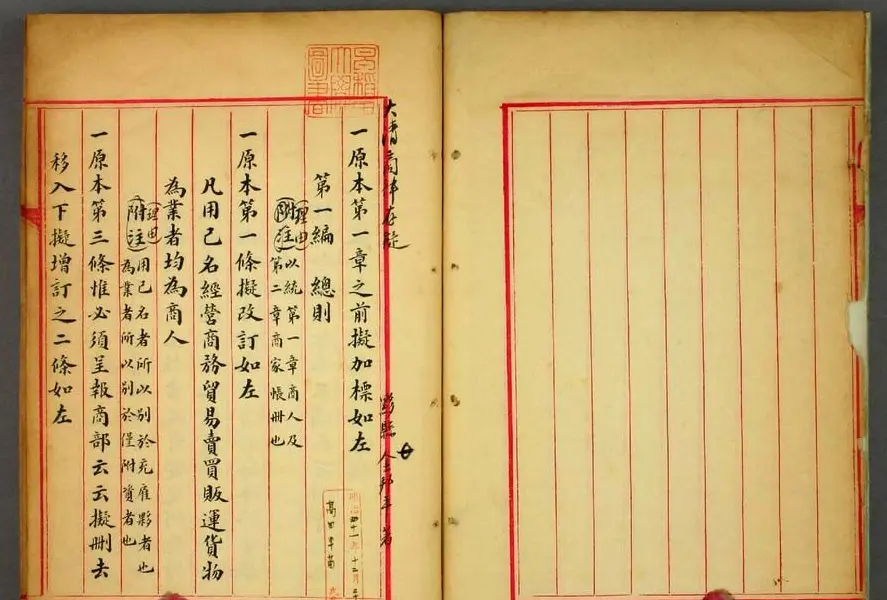 早稻田
大學
圖書
大清商律存疑
黟縣 金邦平 著
明治四十一年十二月
高田早苗
一原本第一章之前擬加標如左
第一編 總則
理由
附注
以統第一章商人及
第二章商家帳册也
一原本第一條擬改訂如左
凡用己名經營商務貿易賣買販運貨物
為業者均為商人
理由
附注
用己名者所以別於充雇夥者也
為業者所以別於僅附資者也
一原本第三條惟必須呈報商部云云擬刪去
移入下擬增訂之二條如左